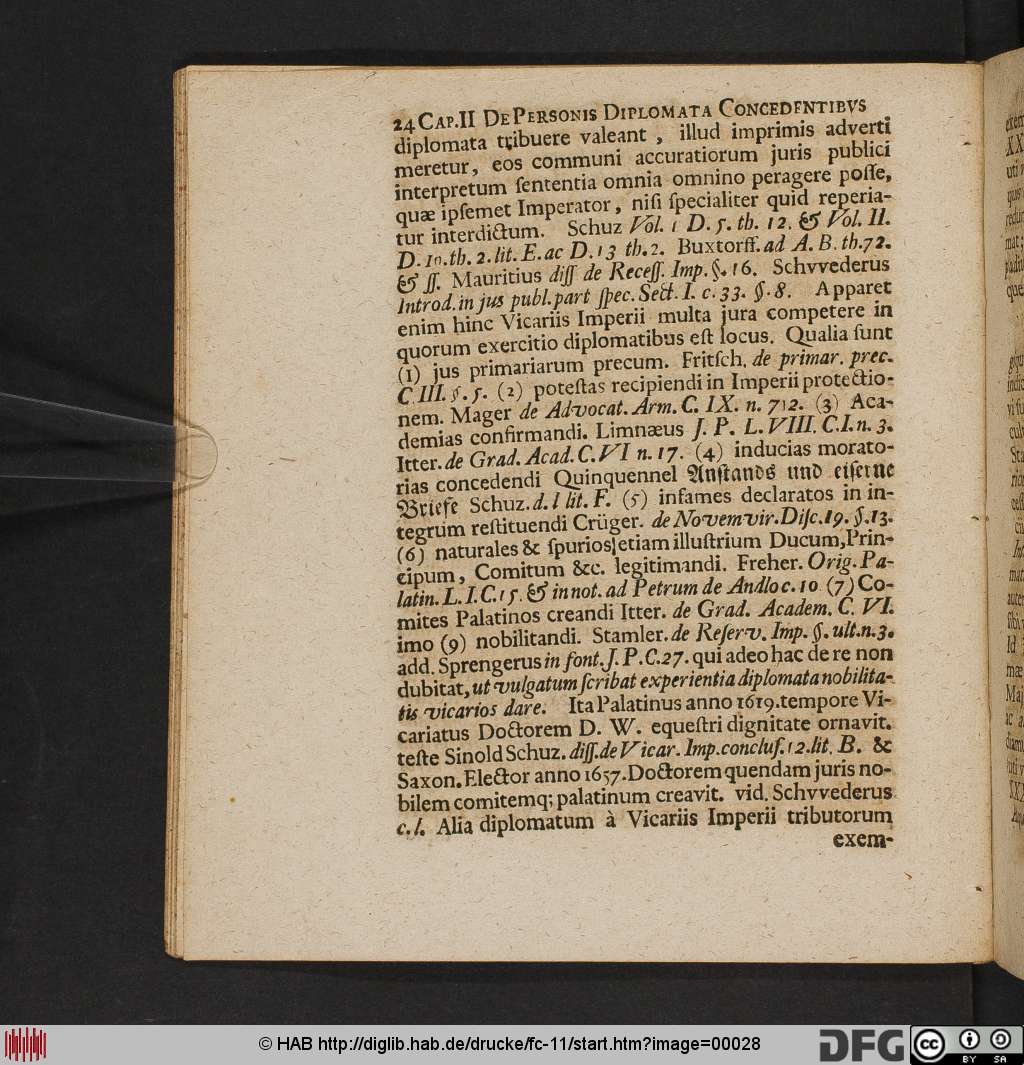 24 CAP. II DE PERSONIS DIPLOMATA CONCEDENTIBVS
diplomata tribuere valeant , illud imprimis adverti
meretur, eos communi accuratiorum juris publici
interpretum ſententia omnia omnino peragere poſſe,
quæ ipſemet Imperator, niſi ſpecialiter quid reperia-
tur interdictum. Schuz Vol. 1 D. 5. th. 12. & Vol. II.
D. 10. th. 2. lit. E. ac D. 13 th. 2. Buxtorff. ad A. B. th. 72.
& ſſ. Mauritius diſſ de Receſſ. Imp. §. 16. Schvvederus
Introd. in jus publ. part ſpec. Sect. I. c. 33. §. 8. Apparet
enim hinc Vicariis Imperii multa jura competere in
quorum exercitio diplomatibus eſt locus. Qualia ſunt
(1) jus primariarum precum. Fritſch. de primar. prec.
C III. §. 5. (2) poteſtas recipiendi in Imperii protectio-
nem. Mager de Advocat. Arm. C. IX. n. 712. (3) Aca-
demias confirmandi. Limnæus J. P. L. VIII. C. I. n. 3.
Itter. de Grad. Acad. C. VI n. 17. (4) inducias morato-
rias concedendi Quinquennel Anſtands und eiſerne
Brieſe Schuz. d. l lit. F. (5) infames declaratos in in-
tegrum reſtituendi Crüger. de Novemvir. Diſc. 19. §. 13.
(6) naturales & ſpurios, etiam illuſtrium Ducum, Prin-
cipum, Comitum &c. legitimandi. Freher. Orig. Pa-
latin. L. I. C. 15. & in not. ad Petrum de Andlo c. 10 (7) Co-
mites Palatinos creandi Itter. de Grad. Academ. C. VI.
imo (9) nobilitandi. Stamler. de Reſerv. Imp. §. ult. n. 3.
add. Sprengerus in font. J. P. C. 27. qui adeo hac de re non
dubitat, ut vulgatum ſcribat experientia diplomata nobilita-
tis vicarios dare. Ita Palatinus anno 1619. tempore Vi-
cariatus Doctorem D. W. equeſtri dignitate ornavit.
teſte Sinold Schuz. diſſ. de Vicar. Imp. concluſ. 12. lit. B. &
Saxon. Elector anno 1657. Doctorem quendam juris no-
bilem comitemq; palatinum creavit. vid. Schvvederus
c. l. Alia diplomatum à Vicariis Imperii tributorum
exem-
© HAB http://diglib.hab.de/drucke/fc-11/start.htm?image=00028
DFG
cc BY SA